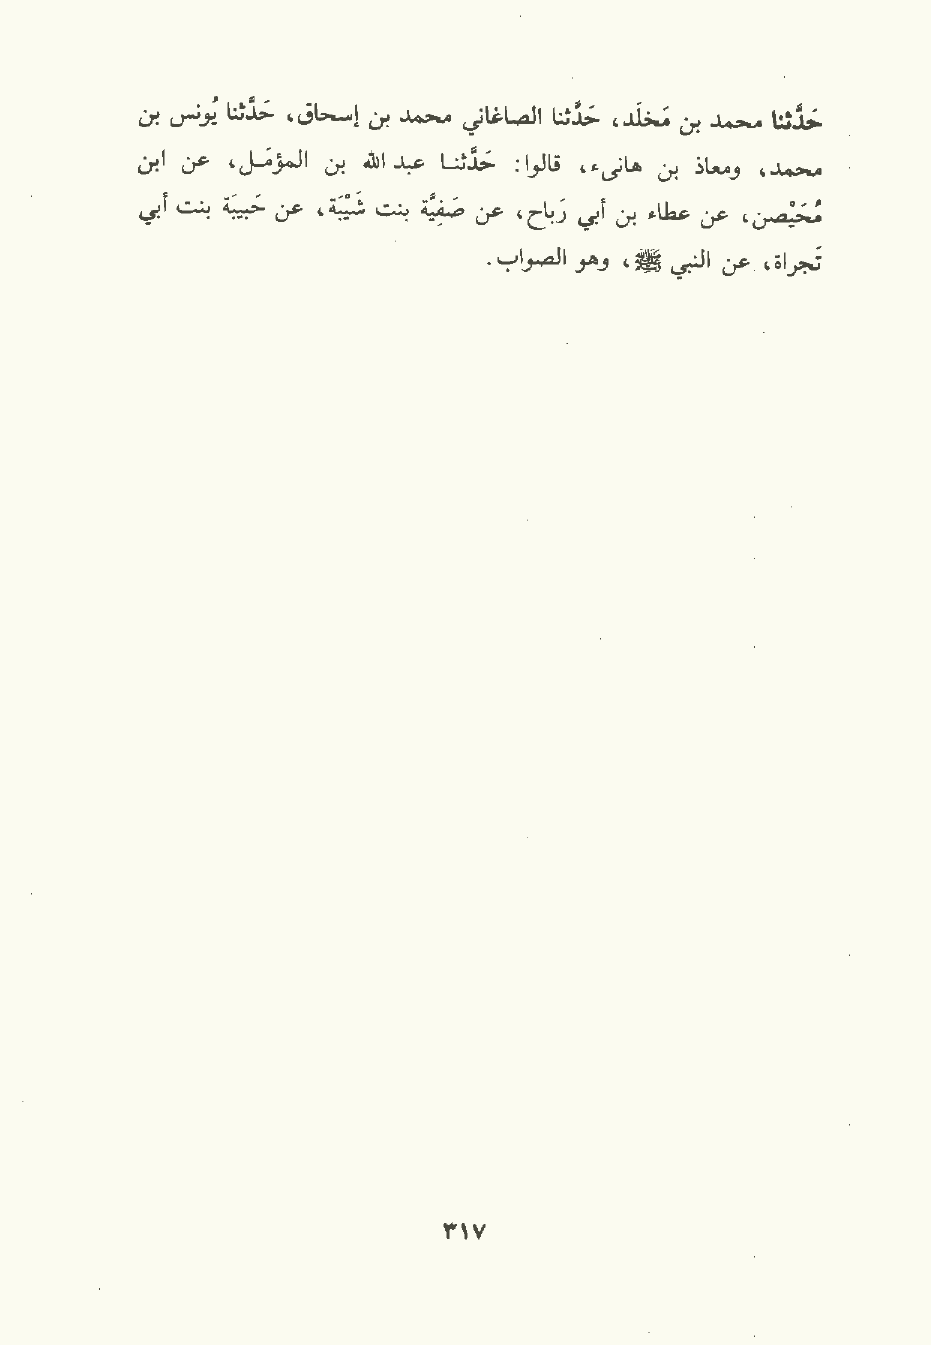 حَدَّثنا محمد بن مَخلَد، حَدَّثنا الصاغاني محمد بن إسحاق، حَدَّثنا يُونس بن
محمد، ومعاذ بن هانىء، قالوا: حَدَّثنـا عبد الله بن المؤمَـل، عن ابن
مُحَيْصن، عن عطاء بن أبي رَباح، عن صَفِيَّة بنت شَيْبَة، عن حَبيبَة بنت أبي
تَجراة، عن النبي ﷺ، وهو الصواب.
٣١٧